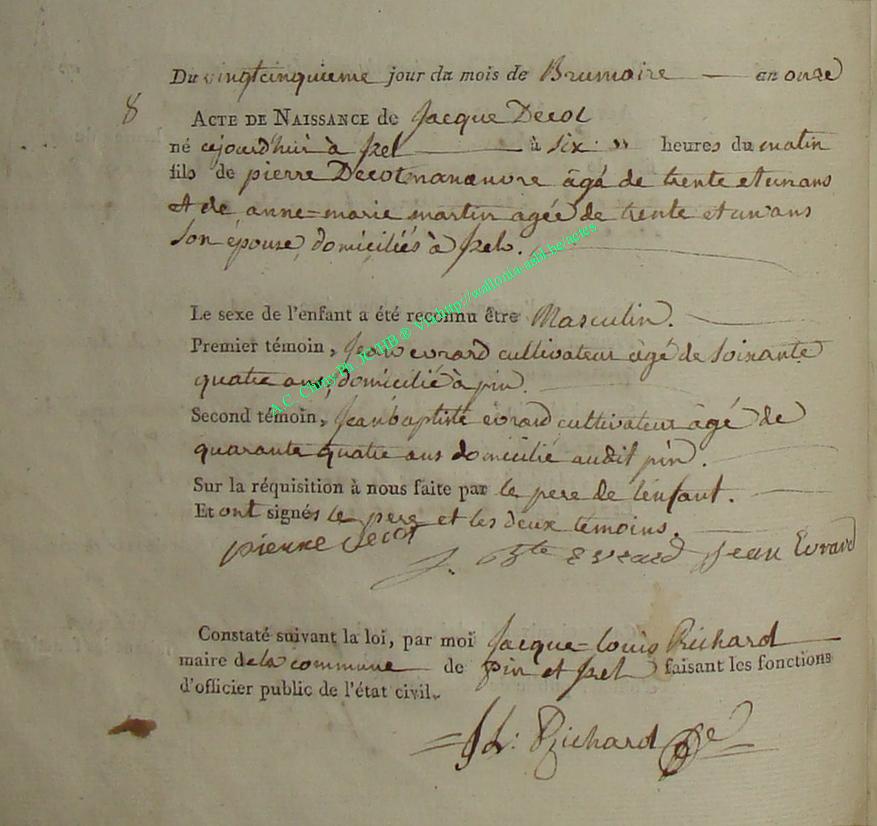 Du vingtcinquieme jour du mois de Brumaire — an onze
8
ACTE DE NAISSANCE de Jacque Decot
né ajourd'hui à Izel — à six heures du matin
fils de pierre Decot manœuvre âgé de trente et un ans
et de anne=marie martin agée de trente et un ans
son épouse, domiciliés à Izel.
Le sexe de l'enfant a été reconnu être Masculin.
Premier témoin, Jean evrard cultivateur âgé de soixante
quatre ans, domicilié à pin.
Second témoin, Jean baptiste evrard cultivateur âgé de
quarante quatre ans domicilié audit pin.
Sur la réquisition à nous faite par le pere de lenfant.
Et ont signés le pere et les deux temoins.
pierre decot J. Bte evrard Jean Evrard
Constaté suivant la loi, par moi Jacque=louis Richard
maire de la commune de pin et Izel faisant les fonctions
d'officier public de l'état civil.
J L: Richard
A.C. Chiny Ph. JCHB ® Via http://wallonia-asbl.be/actes